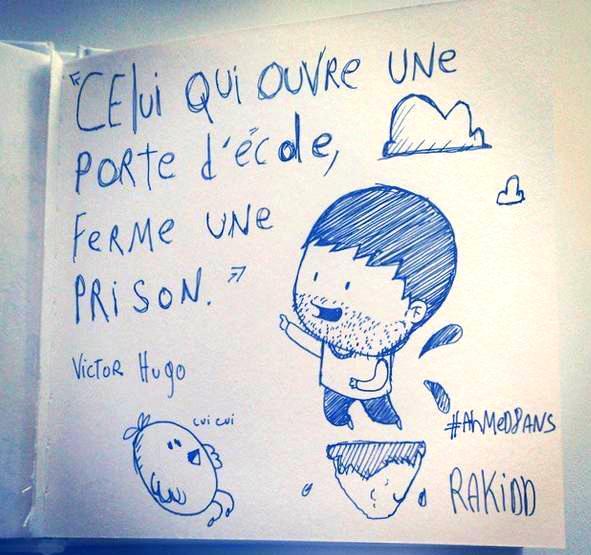 "CELui QUi OUVRE UNE
PORTE d'école,
FERME UNE
PRISON."
VICTOR HUGO
cui cui
#AhMED8ANS
RAKiDD